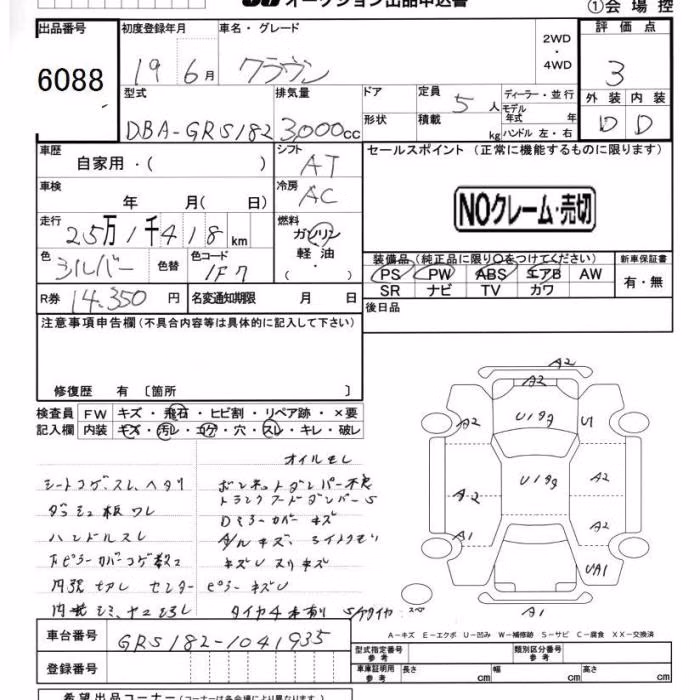 オークション出品申込書
①会場控
出品番号 初度登録年月 車名・グレード 2WD・4WD 評価点
6088 19 6月 クラウン 3
型式 排気量 ドア 定員 5人 ディーラー・並行 外装 内装
DBA-GRS182 3,000cc 形状 積載 kg モデル年式 年 ハンドル 左・右 D D
車歴 自家用・( ) シフト AT セールスポイント(正常に機能するものに限ります)
車検 年 月( 日) 冷房 AC
NOクレーム・売切
走行 25万1千418km 燃料 ガソリン 軽油 ・( )
色 シルバー 色替 色コード 1F7
装備品(純正品に限り○をつけてください) 新車保証書
PS PW ABS エアB AW 有・無
SR ナビ TV カワ
R券 14,350円 名変通知期限 月 日
後日品
注意事項申告欄(不具合内容等は具体的に記入して下さい)
修復歴 有〔箇所 〕
検査員 FW キズ・飛石・ヒビ割・リペア跡・×要
記入欄 内装 キズ・汚レ・コゲ・穴・スレ・キレ・破レ
オイルモレ
シートコゲ、スレ、ヘタリ ボンネットダンパー不良
ダッシュ板ワレ トランクフードダンパーS
ハンドルスレ Dミラーカバーキズ
キズUスリキズ
内張切レ センターピラーキズU
タイヤ4本有り Sタイヤ
A2
A2
A2 U1 99 U1
A2 U1 99 A2
A1 A2
UA1
A1
スペア
A-キズ E-エクボ U-凹み W-補修跡 S-サビ C-腐食 XX-交換済
車台番号 GRS182-1041935
型式指定番号 参考 類別区分番号 参考
登録番号
車庫証明用 参考 長さ cm 幅 cm 高さ cm
希望出品コーナー(コーナーは各会場により異なります)